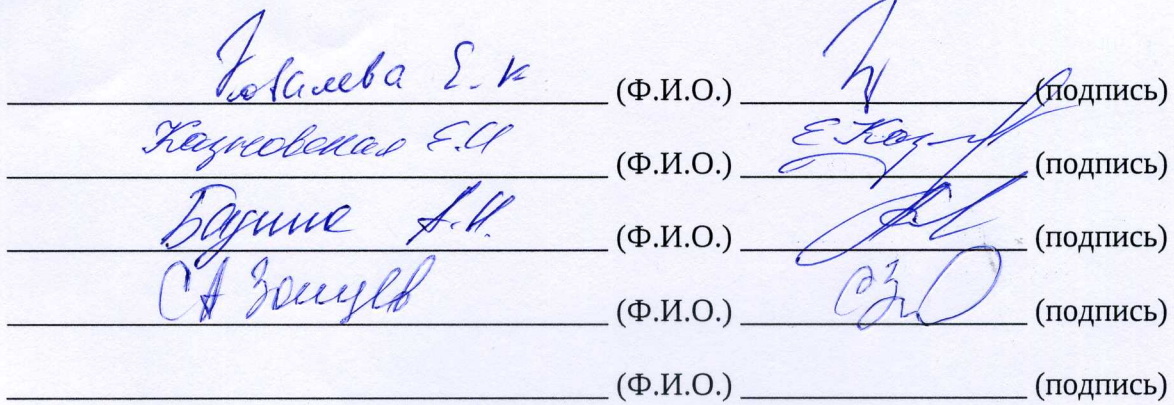 Ковалева Е.К (Ф.И.О.) (подпись)
Козновская Е.И (Ф.И.О.) Е Коз (подпись)
Бадина А.И. (Ф.И.О.) (подпись)
СА Зайцев (Ф.И.О.) (подпись)
(Ф.И.О.) (подпись)